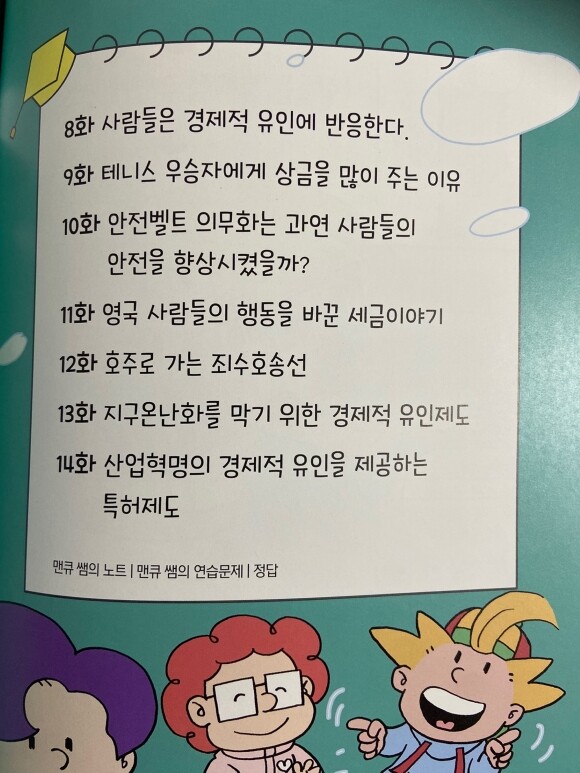 8화 사람들은 경제적 유인에 반응한다.
9화 테니스 우승자에게 상금을 많이 주는 이유
10화 안전벨트 의무화는 과연 사람들의
안전을 향상시켰을까?
11화 영국 사람들의 행동을 바꾼 세금이야기
12화 호주로 가는 죄수호송선
13화 지구온난화를 막기 위한 경제적 유인제도
14화 산업혁명의 경제적 유인을 제공하는
특허제도
맨큐 쌤의 노트 | 맨큐 쌤의 연습문제 | 정답